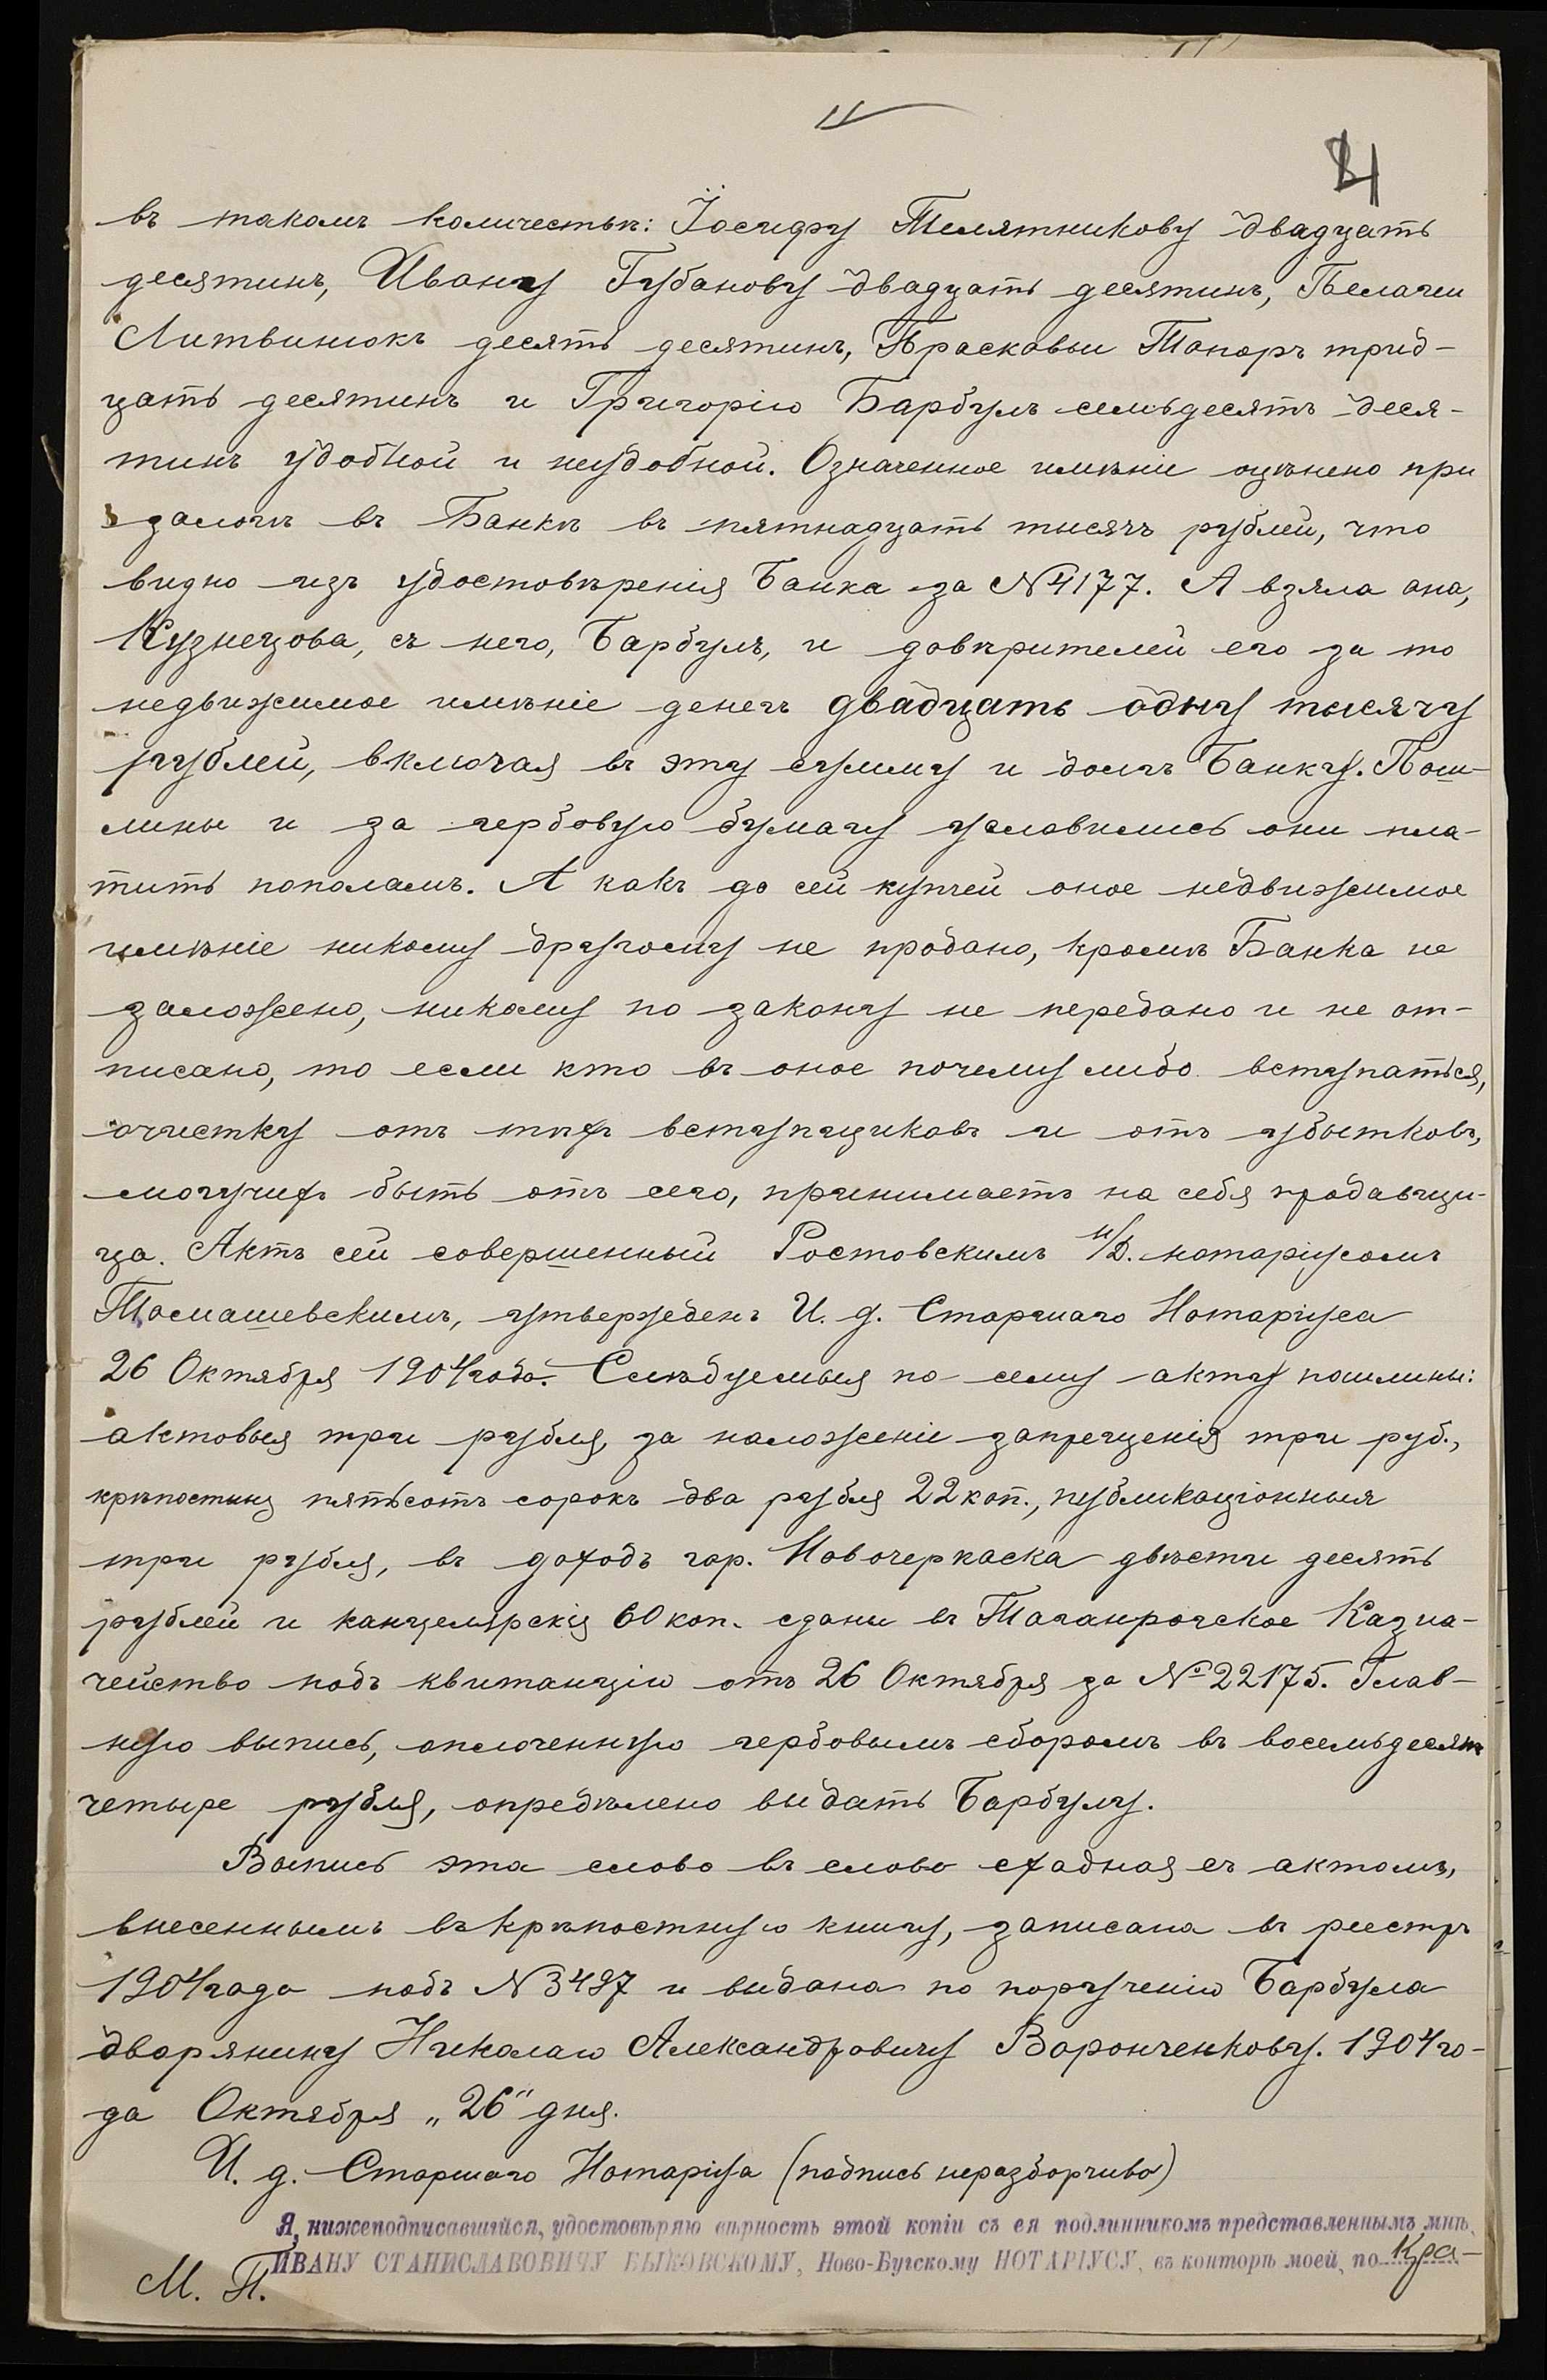 21
въ такомъ количествѣ: Іосифу Телятникову двадцать
десятинъ, Ивану Губанову двадцать десятинъ, Пелагеи
Литвинюкъ десять десятинъ, Прасковьи Топоръ трид-
цать десятинъ и Григорію Барбулъ семьдесятъ деся-
тинъ удобной и неудобной. Означенное имѣніе оцѣнено при
залогѣ въ Банкѣ въ пятнадцать тысячъ рублей, что
видно изъ удостовѣренія Банка за № 4177. А взяла она,
Кузнецова, съ него, Барбулъ, и довѣрителей его за то
недвижимое имѣніе денегъ двадцать одну тысячу
рублей, включая въ эту сумму и долгъ Банку. Пош-
лины и за гербовую бумагу условились они пла-
тить пополамъ. А какъ до сей купчей оное недвижимое
имѣніе никому другому не продано, кромѣ Банка не
заложено, никому по закону не передано и не от-
писано, то если кто въ оное почему либо вступаться,
очистку отъ тѣхъ вступщиковъ и отъ убытковъ,
могущихъ быть отъ сего, принимаетъ на себя продавщи-
ца. Актъ сей совершенный Ростовскимъ И/Д. нотаріусомъ
Томашевскимъ, утвержденъ И. д. Старшаго Нотаріуса
26 Октября 1904 года. Слѣдуемыя по сему акту пошлины:
актовыя три рубля, за наложеніе запрещенія три руб.,
крѣпостныя пятьсотъ сорокъ два рубля 22 коп., публикаціонныя
три рубля, въ доходъ гор. Новочеркаска двѣсти десять
рублей и канцелярскія 60 коп. сданы въ Таганрогское Казна-
чейство подъ квитанцію отъ 26 Октября за № 22175. Глав-
ную выпись, оплоченную гербовымъ сборомъ въ восемьдесятъ
четыре рубля, опредѣлено выдать Барбулу.
Выпись эта слово въ слово сходная съ актомъ,
внесеннымъ въ крѣпостную книгу, записана въ реестръ
1904 года подъ № 3497 и выдана по порученію Барбула
дворянину Николаю Александровичу Воронченкову. 1904 го-
да Октября „26" дня.
И. д. Старшаго Нотаріуса (подпись неразборчива)
Я, нижеподписавшійся, удостовѣряю вѣрность этой копіи съ ея подлинникомъ представленнымъ мнѣ,
ИВАНУ СТАНИСЛАВОВИЧУ БЫКОВСКОМУ, Ново-Бугскому НОТАРІУСУ, въ конторѣ моей, по Кра-
М. П.